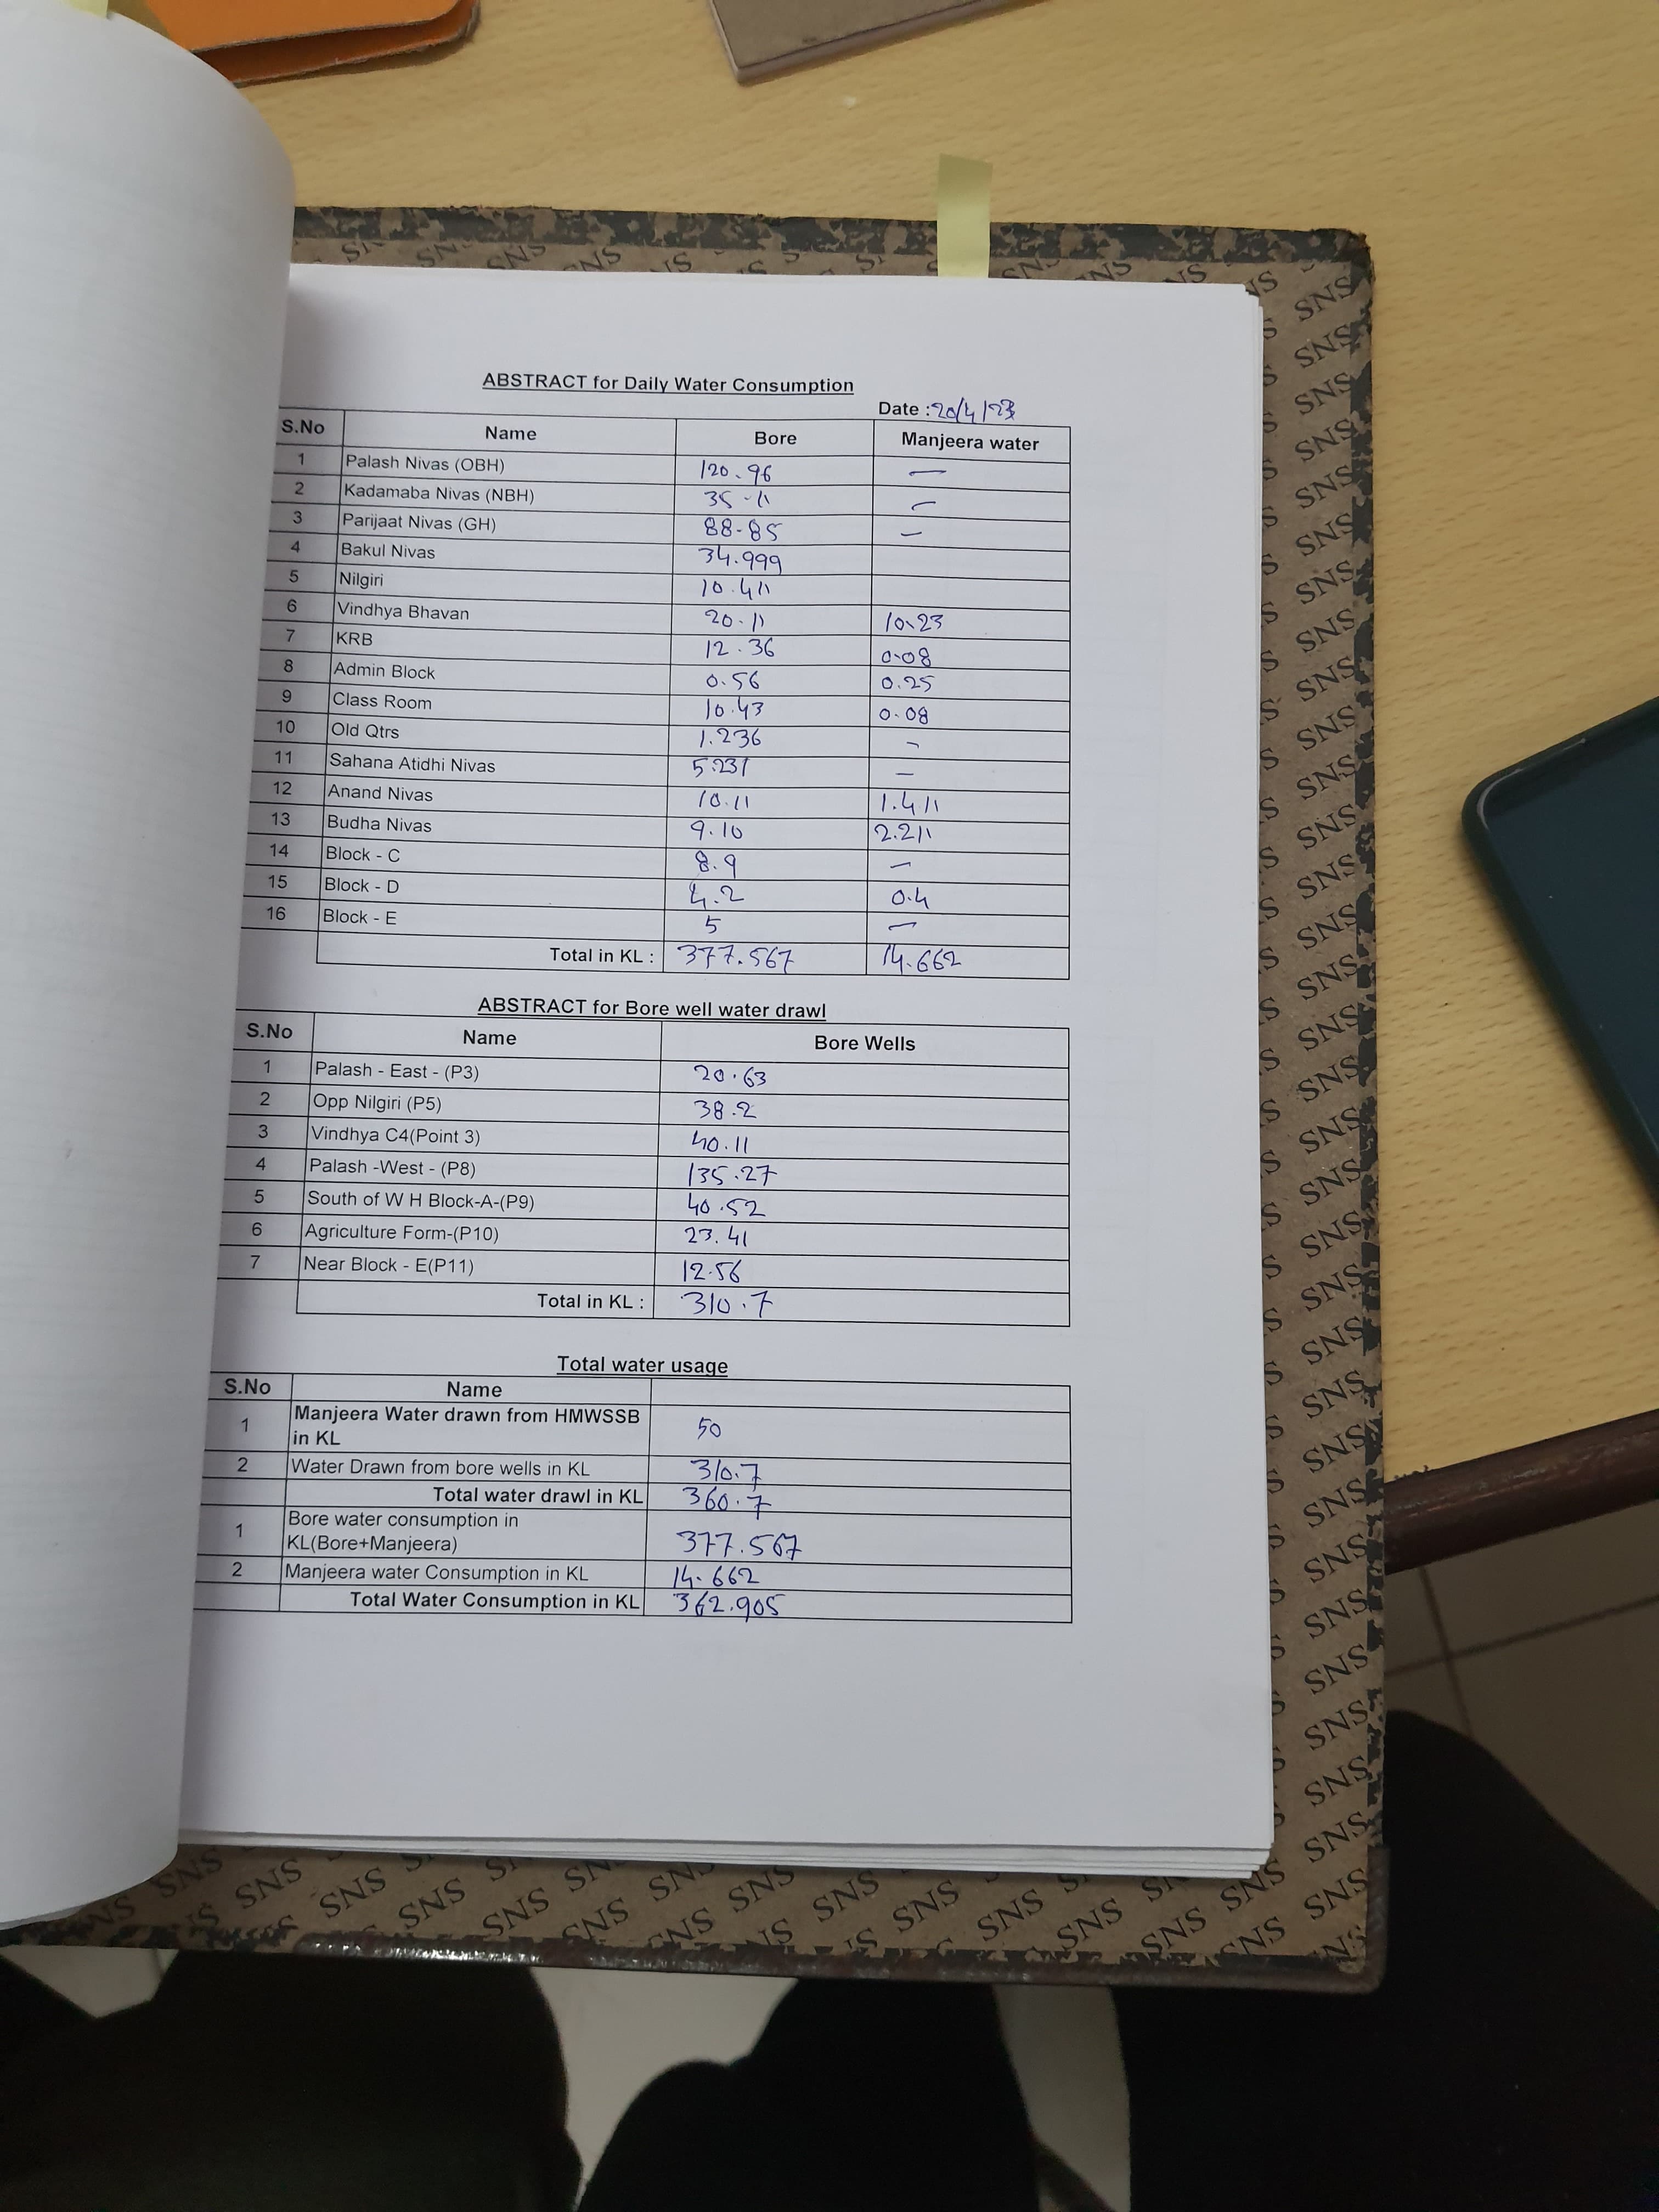 ABSTRACT for Daily Water Consumption
Date : 20/4/23
S.No Name Bore Manjeera water
1 Palash Nivas (OBH) 120.96 —
2 Kadamaba Nivas (NBH) 35.11 —
3 Parijaat Nivas (GH) 88.85 —
4 Bakul Nivas 34.999
5 Nilgiri 10.411
6 Vindhya Bhavan 20.11 10.23
7 KRB 12.36 0.08
8 Admin Block 0.56 0.25
9 Class Room 10.43 0.08
10 Old Qtrs 1.236 -
11 Sahana Atidhi Nivas 5.231 —
12 Anand Nivas 10.11 1.411
13 Budha Nivas 9.10 2.211
14 Block - C 8.9 —
15 Block - D 4.2 0.4
16 Block - E 5 —
Total in KL : 377.567 14.662
ABSTRACT for Bore well water drawl
S.No Name Bore Wells
1 Palash - East - (P3) 20.63
2 Opp Nilgiri (P5) 38.2
3 Vindhya C4(Point 3) 40.11
4 Palash -West - (P8) 135.27
5 South of W H Block-A-(P9) 40.52
6 Agriculture Form-(P10) 23.41
7 Near Block - E(P11) 12.56
Total in KL : 310.7
Total water usage
S.No Name
1 Manjeera Water drawn from HMWSSB
in KL 50
2 Water Drawn from bore wells in KL 310.7
Total water drawl in KL 360.7
1 Bore water consumption in
KL(Bore+Manjeera) 377.567
2 Manjeera water Consumption in KL 14.662
Total Water Consumption in KL 362.905
SNS SNS SNS SNS SNS